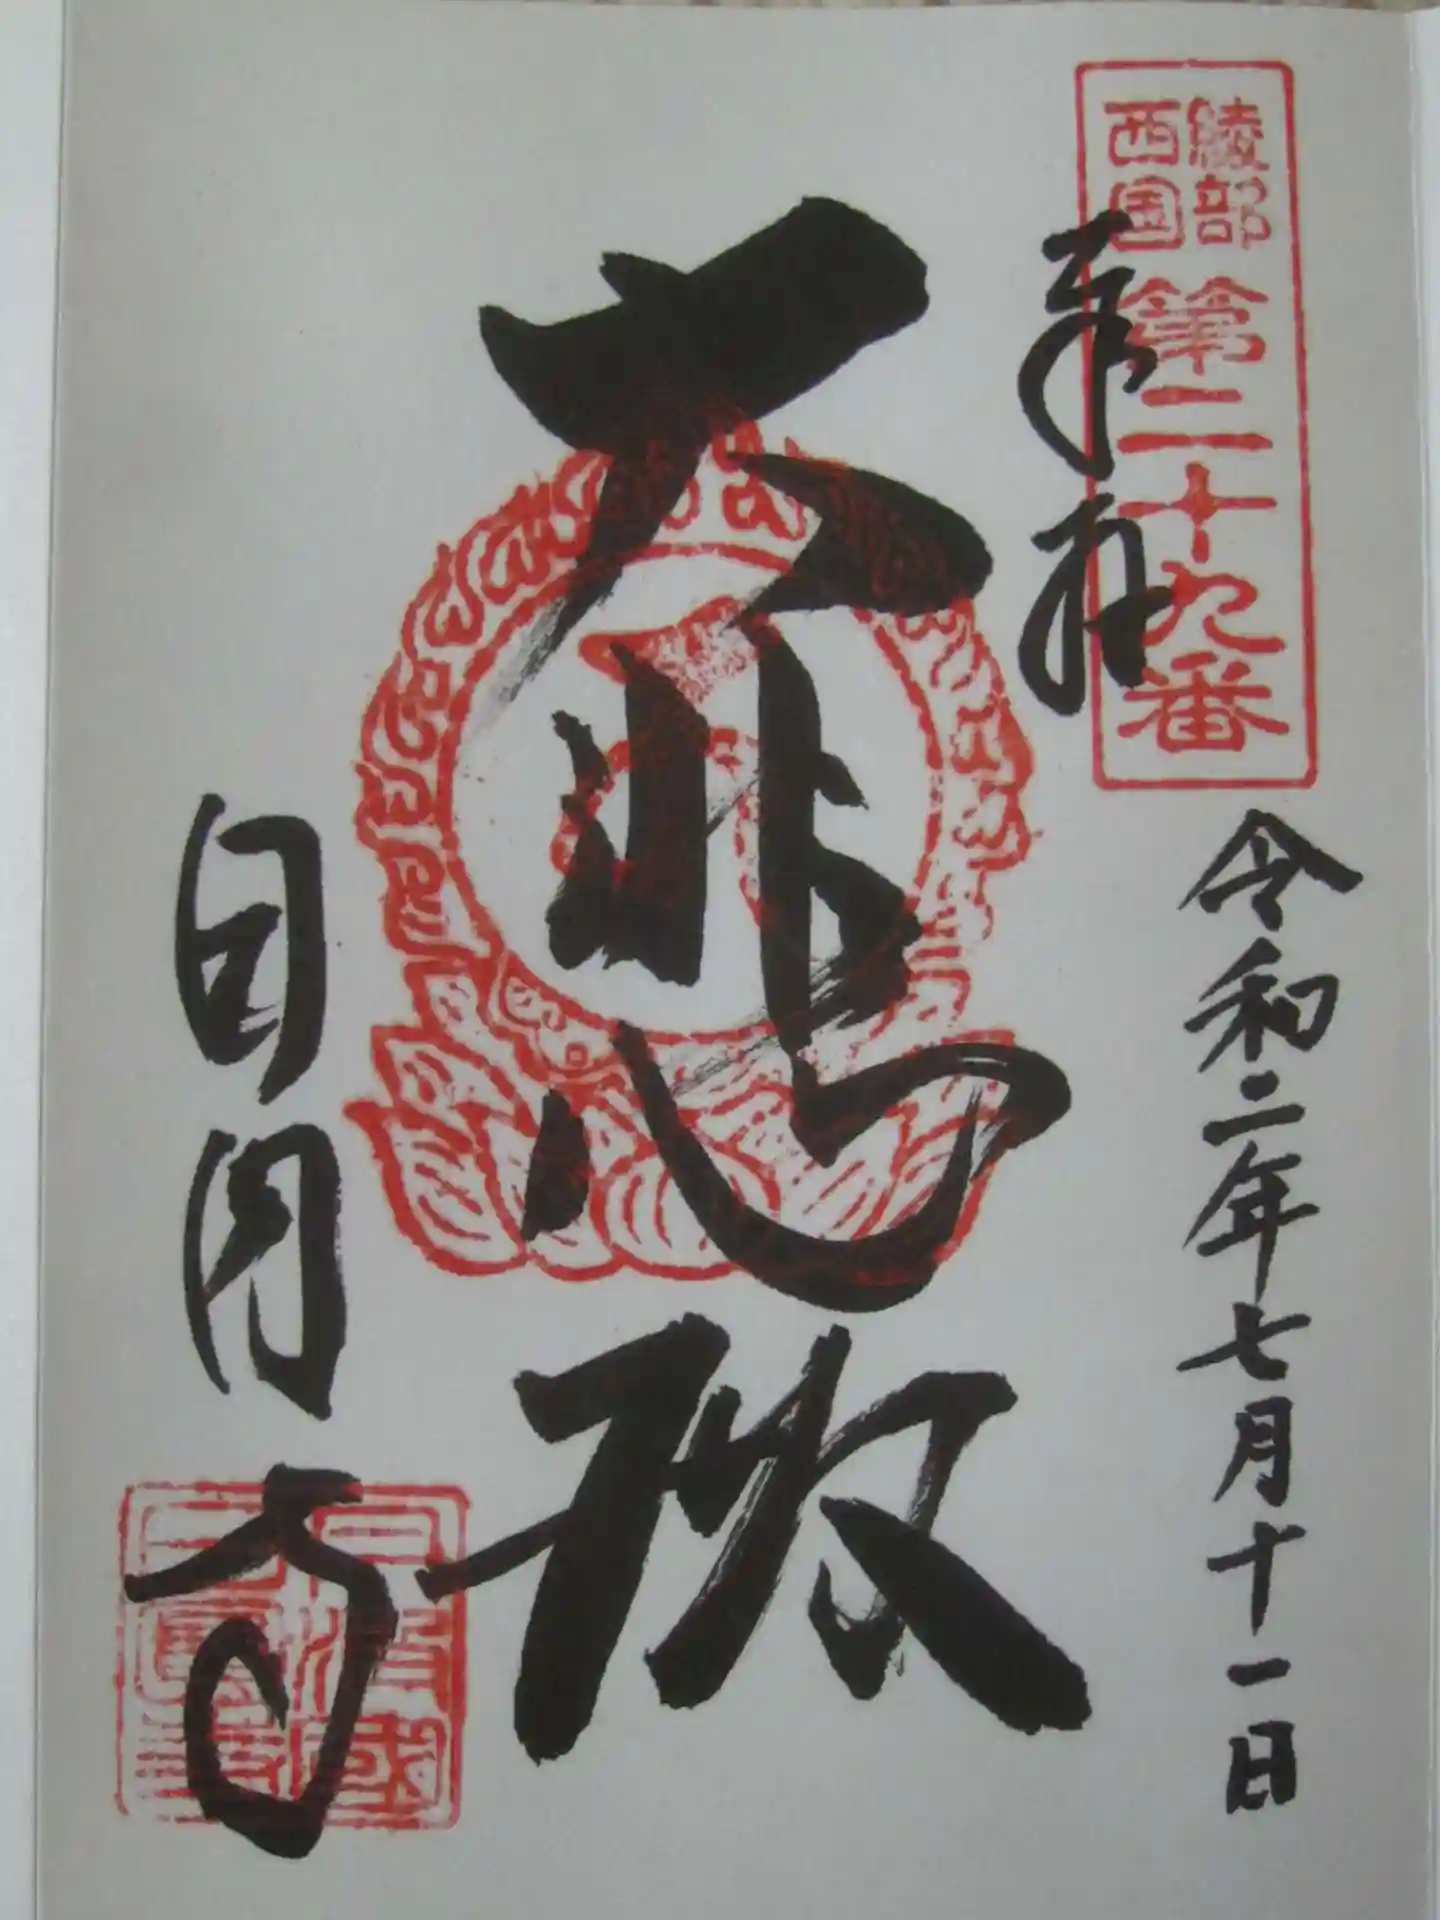 綾部
西国
第二十九番
奉拝
令和二年七月十一日
大悲殿
日円寺
丹波國
日圓寺